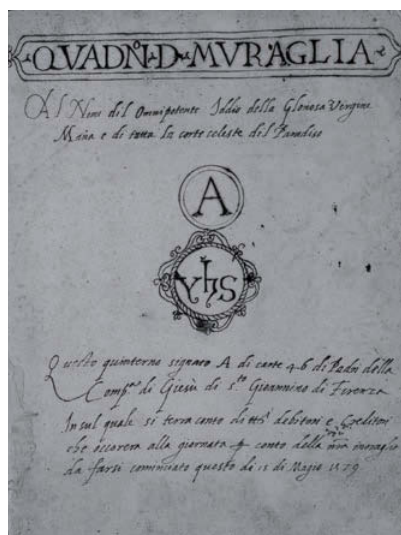 QVADNO D MVRAGLIA
Al Nome dell Omnipotente Iddio della Gloriosa Vergine
Maria e di tutta la corte celeste del Paradiso
A
YHS
Questo quinterno signato A di carte 46 di Padri della
Compa di Giesù di Sto Gioannino di Firenza
In sul quale si terra conto di tti debitori e creditori
che occorera alla giornata conto della muraglia
da farsi cominciato questo di 15 di Magio 1579